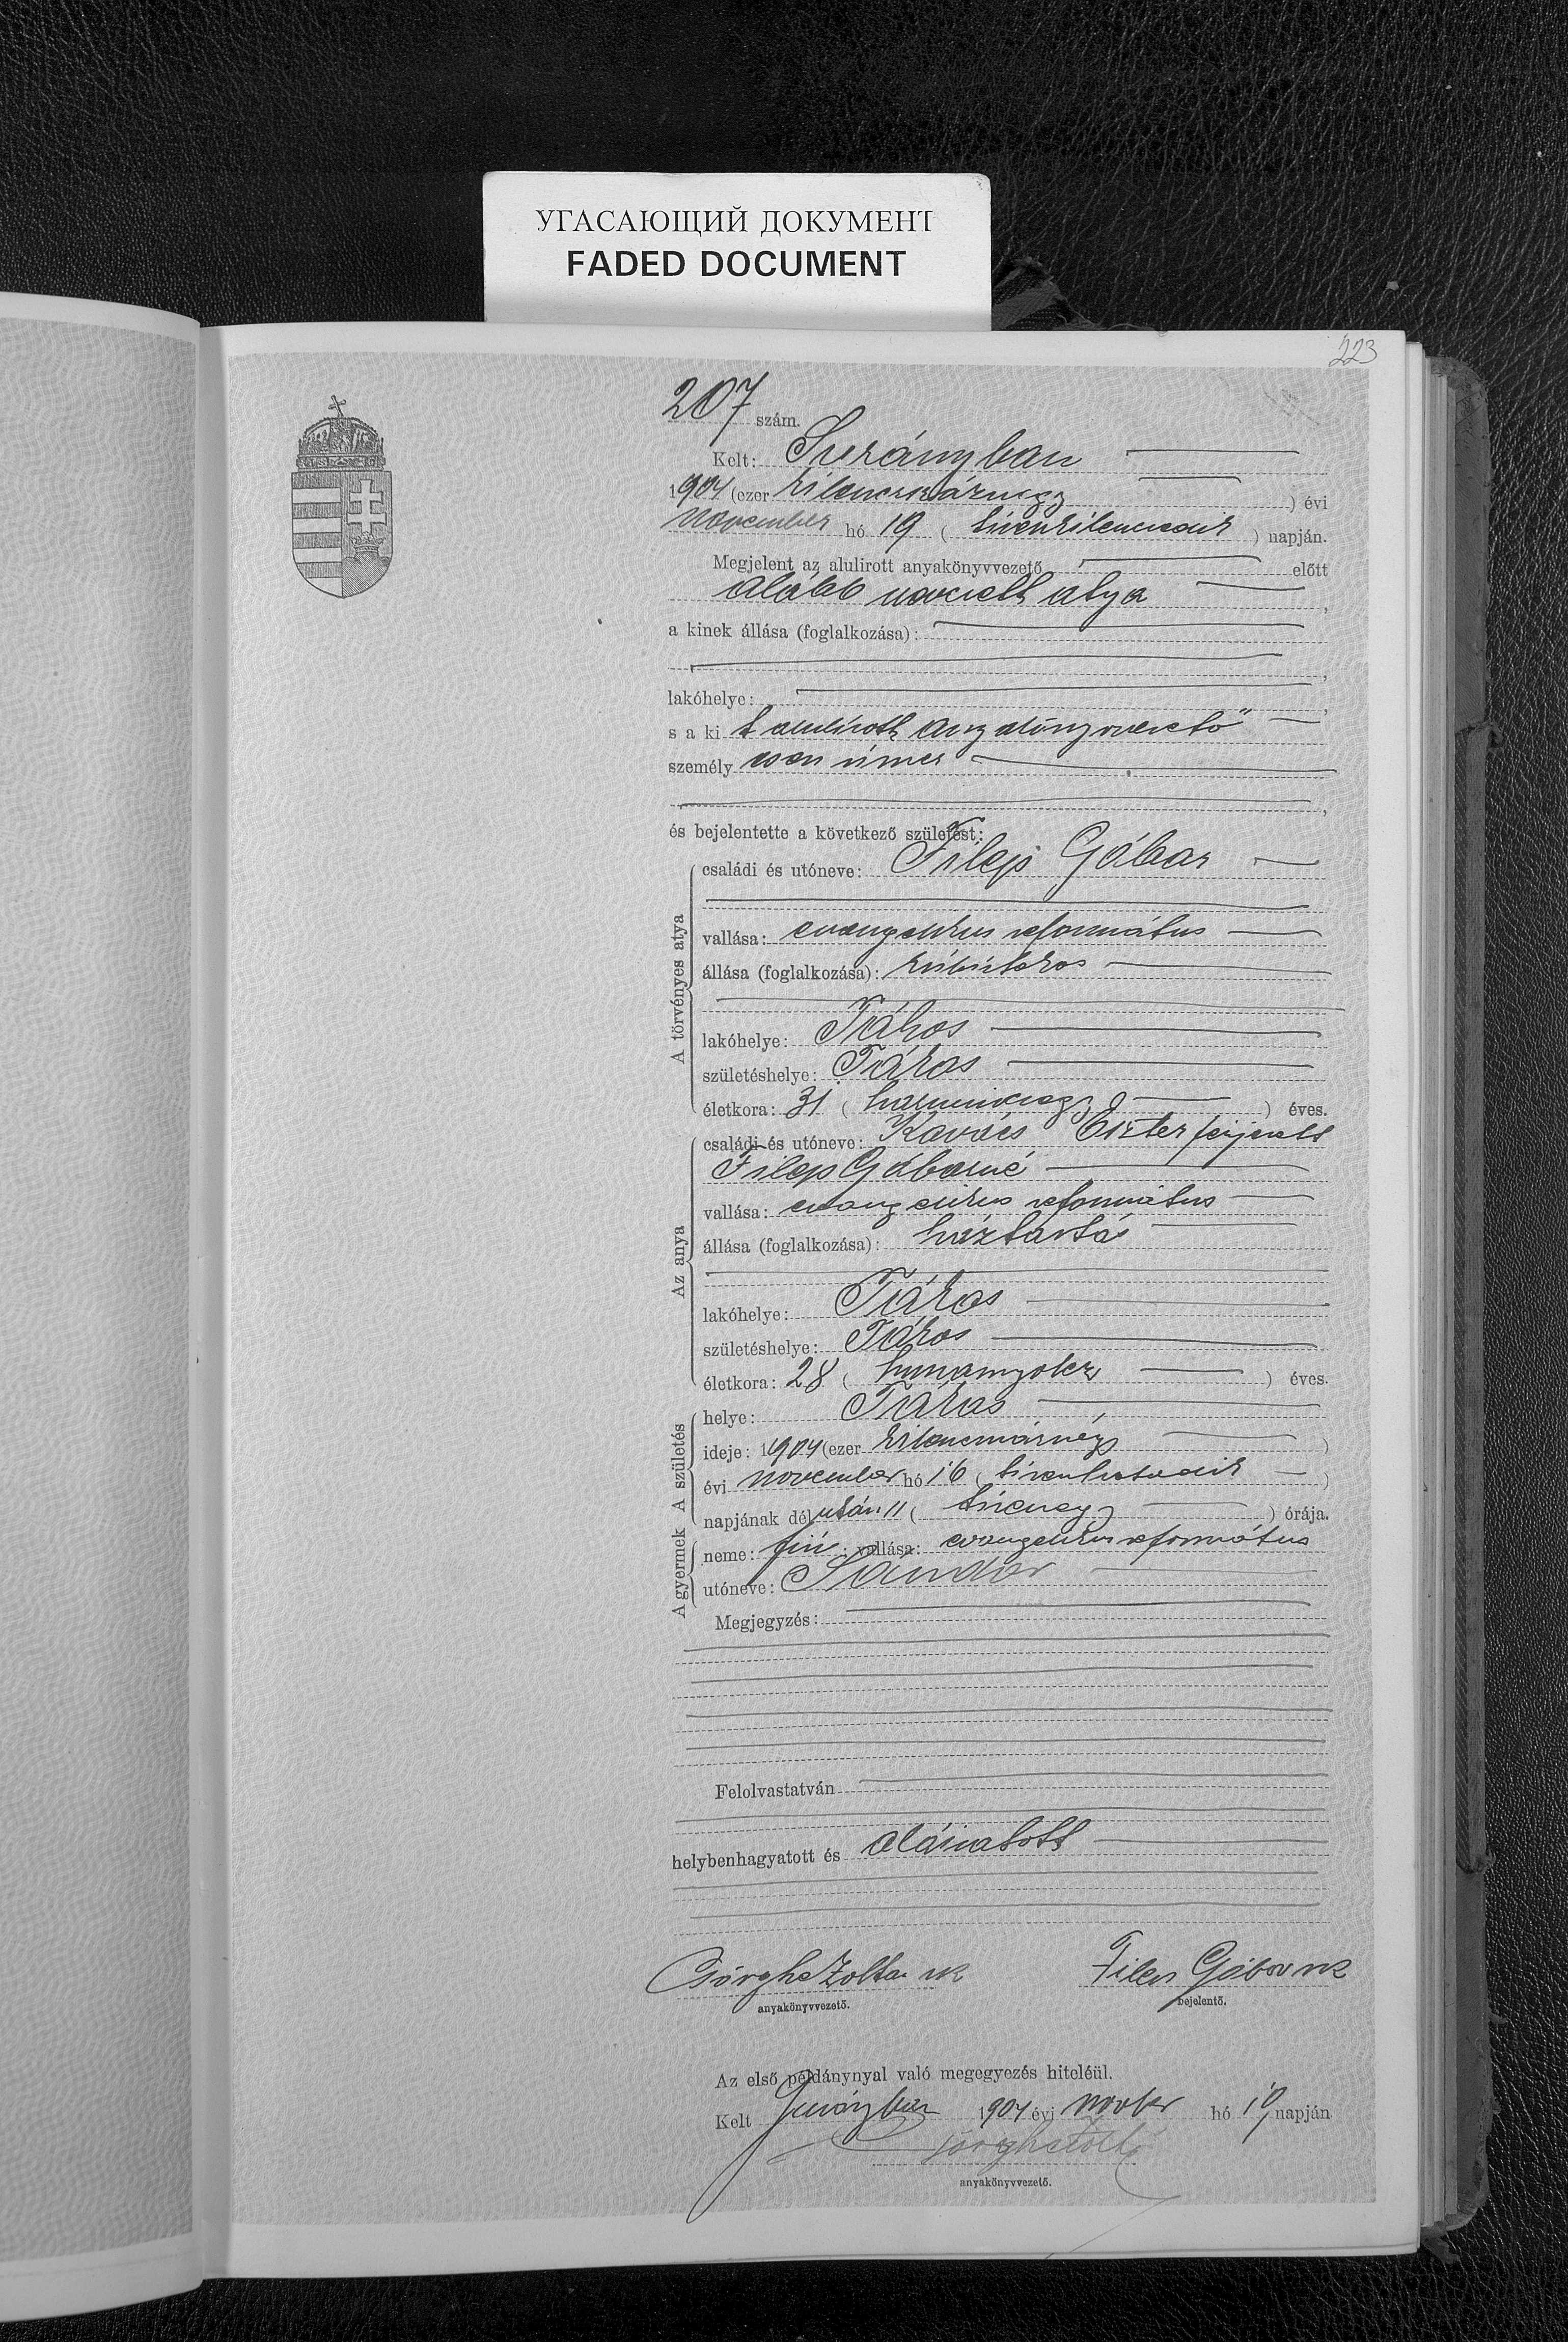 УГАСАЮЩИЙ ДОКУМЕНТ
FADED DOCUMENT
223
207 szám.
Kelt: Surányban
1904 (ezer kilenczáznégy) évi
november hó 19 (tizenkilenczedik) napján.
Megjelent az alulirott anyakönyvvezető előtt
alább nevezett atya,
a kinek állása (foglalkozása):
lakóhelye:
s a ki t alulírott anyakönyvvezető
személyesen ismer
és bejelentette a következő születést:
A törvényes atya
családi és utóneve: Filep Gábor
vallása: evangelikus református
állása (foglalkozása):
lakóhelye: Tákos
születéshelye: Tákos
életkora: 31 (harminczegy) éves.
Az anya
családi és utóneve: Kovács Eszter férjezett
Filep Gáborné
vallása: evangelikus református
állása (foglalkozása): háztartás
lakóhelye: Tákos
születéshelye: Tákos
életkora: 28 (huszonnyolcz) éves.
A születés
helye: Tákos
ideje: 1904 (ezer kilenczáznégy)
évi november hó 16 (tizenhatodik)
napjának délután 11 (tizenegy) órája.
A gyermek
neme: fiú; vallása: evangelikus református
utóneve: Sándor
Megjegyzés:
Felolvastatván
helybenhagyatott és aláiratott
Zoltán nk
anyakönyvvezető.
Filep Gábor nk
bejelentő.
Az első példánynyal való megegyezés hiteléül.
Kelt Surányban 1904 évi novber hó 19 napján
anyakönyvvezető.